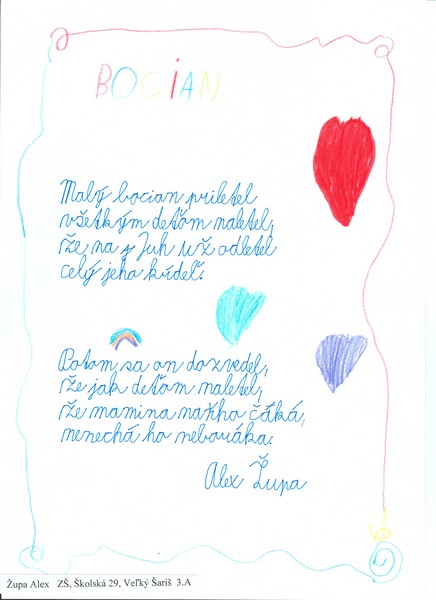 BOCIAN
Malý bocian priletel
všetkým deťom naletel,
že na Juh už odletel
celý jeho kŕdeľ.
Potom sa on dozvedel,
že jak deťom naletel,
že mamina naňho čáká,
nenechá ho neboráka.
Alex Župa
Župa Alex ZŠ, Školská 29, Veľký Šariš 3.A